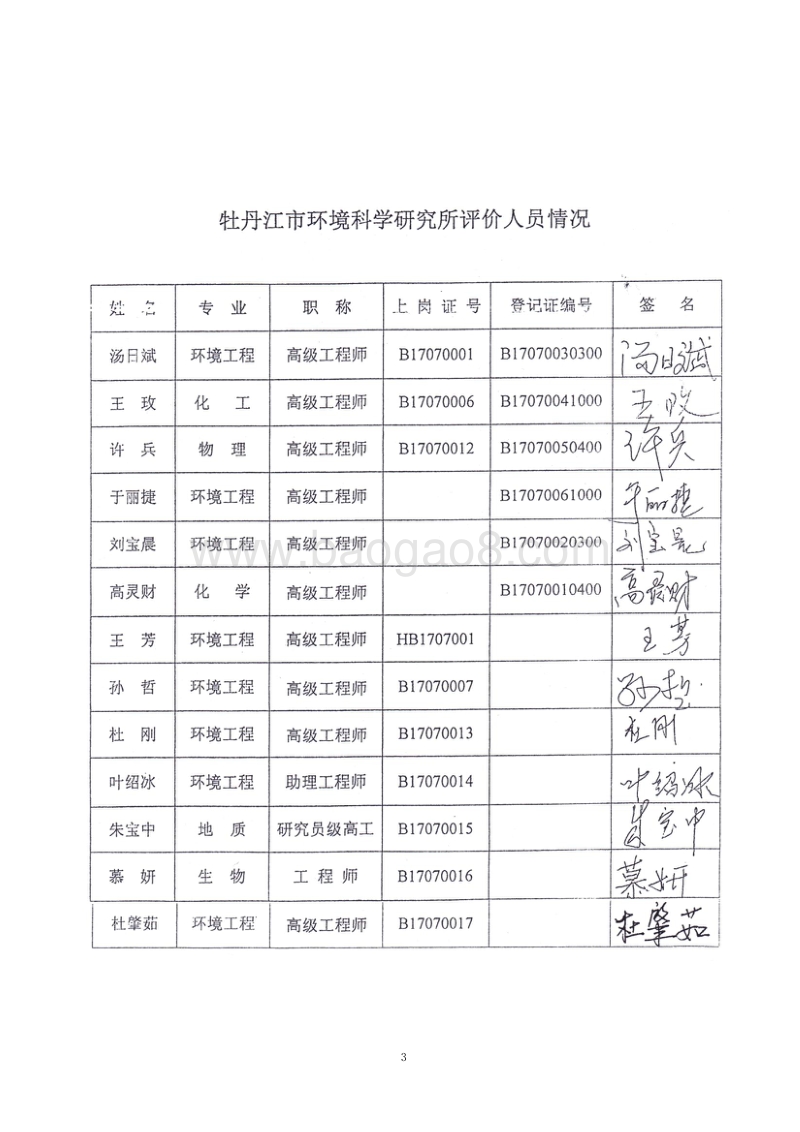 牡丹江市环境科学研究所评价人员情况
姓 名 专 业 职 称 上 岗 证 号 登记证编号 签 名
汤日斌 环境工程 高级工程师 B17070001 B17070030300 汤日斌
王 玫 化 工 高级工程师 B17070006 B17070041000 王玫
许 兵 物 理 高级工程师 B17070012 B17070050400 许兵
于丽捷 环境工程 高级工程师 B17070061000 于丽捷
刘宝晨 环境工程 高级工程师 B17070020300 刘宝晨
www.baogao8.com
高灵财 化 学 高级工程师 B17070010400 高灵财
王 芳 环境工程 高级工程师 HB1707001 王芳
孙 哲 环境工程 高级工程师 B17070007 孙哲
杜 刚 环境工程 高级工程师 B17070013 杜刚
叶绍冰 环境工程 助理工程师 B17070014 叶绍冰
朱宝中 地 质 研究员级高工 B17070015 朱宝中
慕 妍 生 物 工 程 师 B17070016 慕妍
杜肇茹 环境工程 高级工程师 B17070017 杜肇茹
3